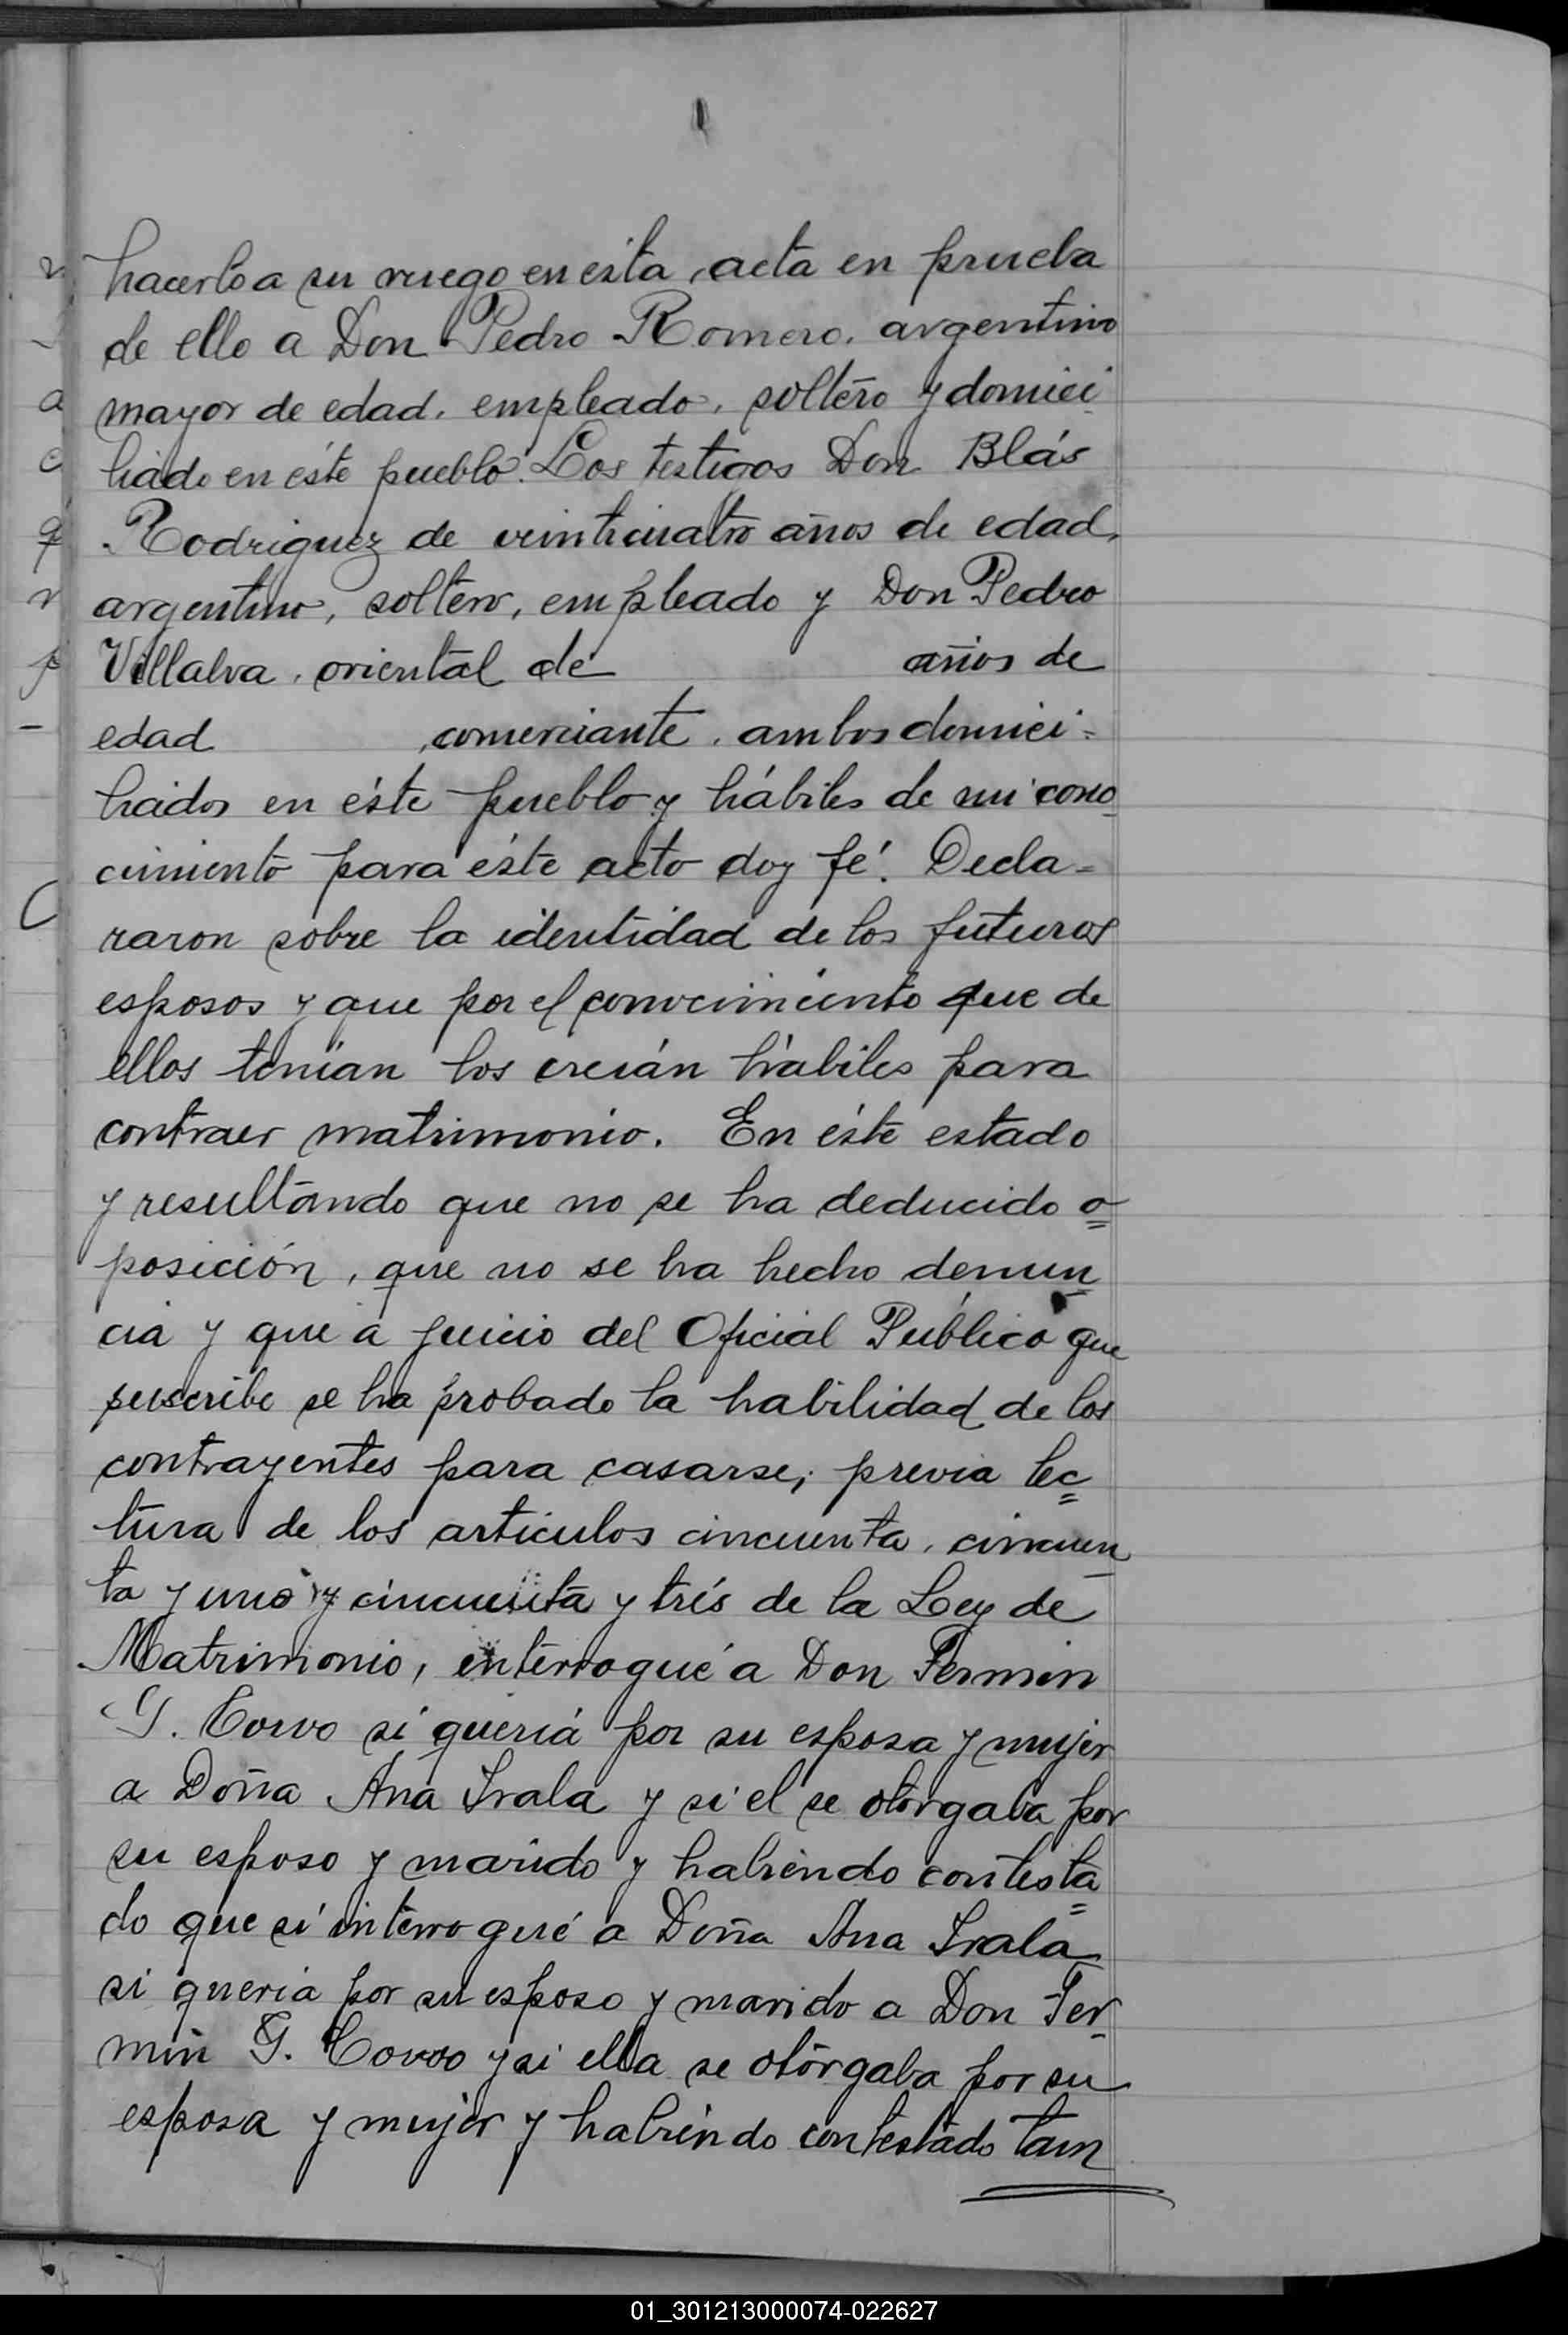 hacerlo a su ruego en ésta acta en prueba
de ello a Don Pedro Romero, argentino
mayor de edad, empleado, soltero y domici
liado en éste pueblo. Los testigos Don Blás
Rodriguez de veinticuatro años de edad,
argentino, soltero, empleado y Don Pedro
Villalva, oriental de años de
edad ,comerciante, ambos domici=
liados en éste pueblo y hábiles de mi cono
cimiento para éste acto doy fé. Decla=
raron sobre la identidad de los futuros
esposos y que por el conocimiento que de
ellos tenian los creián hábiles para
contraer matrimonio. En éste estado
y resultando que no se ha deducido o=
posición, que no se ha hecho denun
cia y que a juicio del Oficial Público que
suscribe se ha probado la habilidad de los
contrayentes para casarse, previa lec=
tura de los articulos cincuenta, cincuen
ta y uno y cincuenta y trés de la Ley de
Matrimonio, interrogué a Don Fermin
G. Corvo si queriá por su esposa y mujer
a Doña Ana Irala y si el se otorgaba por
su esposo y marido y habiendo contesta=
do que sí interrogué a Doña Ana Irala
si queria por su esposo y marido a Don Fer
min G. Corvo y si ella se otorgaba por su
esposa y mujer y habiendo contestado tam
01_301213000074-022627